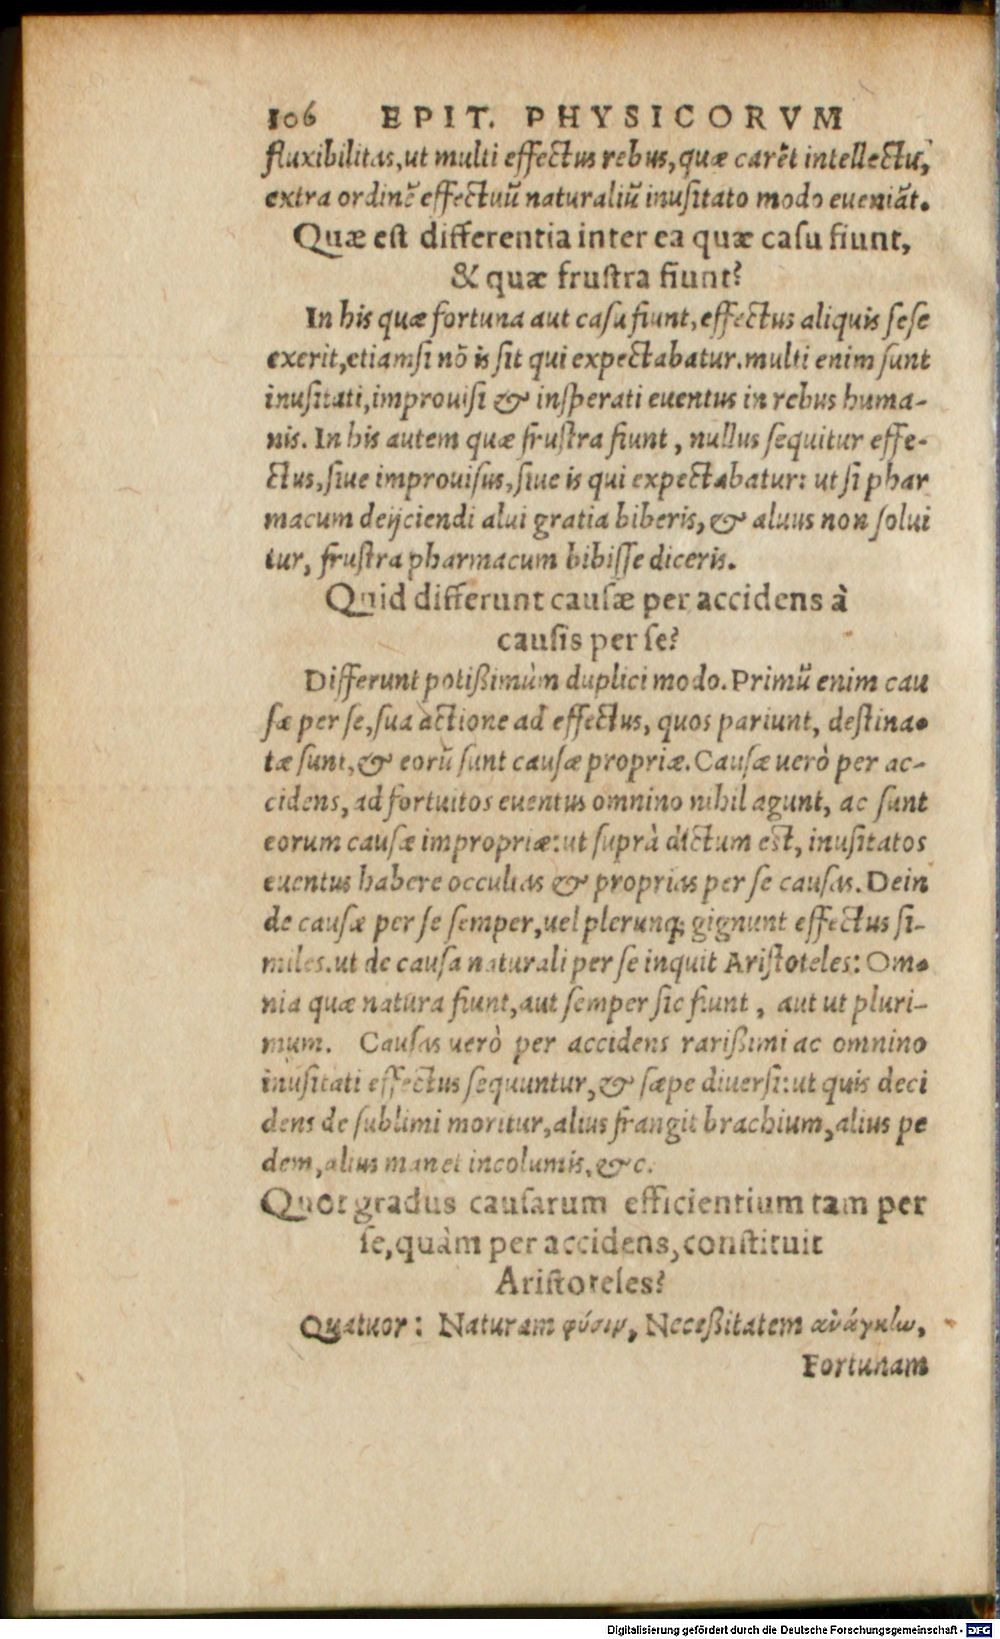 106 EPIT. PHYSICORVM
fluxibilitas, ut multi effectus rebus, quæ carẽt intellectu,
extra ordinẽ effectuũ naturaliũ inusitato modo eueniãt.
Quæ est differentia inter ea quæ casu fiunt,
& quæ frustra fiunt?
In his quæ fortuna aut casu fiunt, effectus aliquis sese
exerit, etiamsi nõ is sit qui expectabatur. multi enim sunt
inusitati, improuisi & insperati euentus in rebus huma-
nis. In his autem quæ frustra fiunt, nullus sequitur effe-
ctus, siue improuisus, siue is qui expectabatur: ut si phar
macum deijciendi alui gratia biberis, & aluus non solui
tur, frustra pharmacum bibisse diceris.
Quid differunt causæ per accidens à
causis per se?
Differunt potißimùm duplici modo. Primũ enim cau
sæ per se, sua actione ad effectus, quos pariunt, destina-
tæ sunt, & eorũ sunt causæ propriæ. Causæ uerò per ac-
cidens, ad fortuitos euentus omnino nihil agunt, ac sunt
eorum causæ impropriæ: ut suprà dictum est, inusitatos
euentus habere occultas & proprias per se causas. Dein
de causæ per se semper, uel plerunq; gignunt effectus si-
miles. ut de causa naturali per se inquit Aristoteles: Om-
nia quæ natura fiunt, aut semper sic fiunt, aut ut pluri-
mum. Causas uerò per accidens rarißimi ac omnino
inusitati effectus sequuntur, & sæpe diuersi: ut quis deci
dens de sublimi moritur, alius frangit brachium, alius pe
dem, alius manet incolumis, &c.
Quot gradus causarum efficientium tam per
se, quàm per accidens, constituit
Aristoteles?
Quatuor: Naturam φύσιν, Neceßitatem ἀνάγκίω,
Fortunam
Digitalisierung gefördert durch die Deutsche Forschungsgemeinschaft - DFG